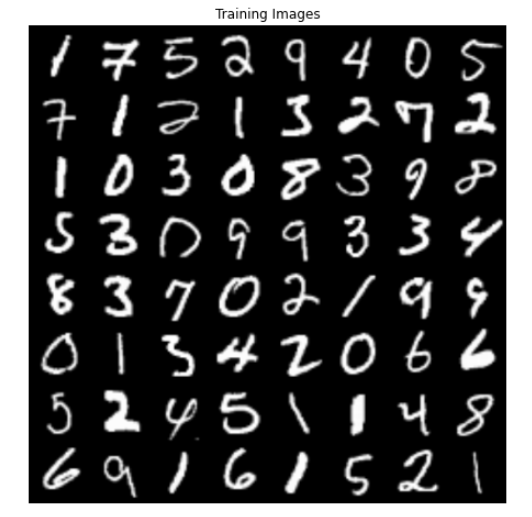 Training Images
1 7 5 2 9 4 0 5
7 1 2 1 3 2 7 2
1 0 3 0 8 3 9 8
5 3 0 9 9 3 3 4
8 3 7 0 2 1 9 9
0 1 3 4 2 0 6 6
5 2 4 5 1 1 4 8
6 9 1 6 1 5 2 1